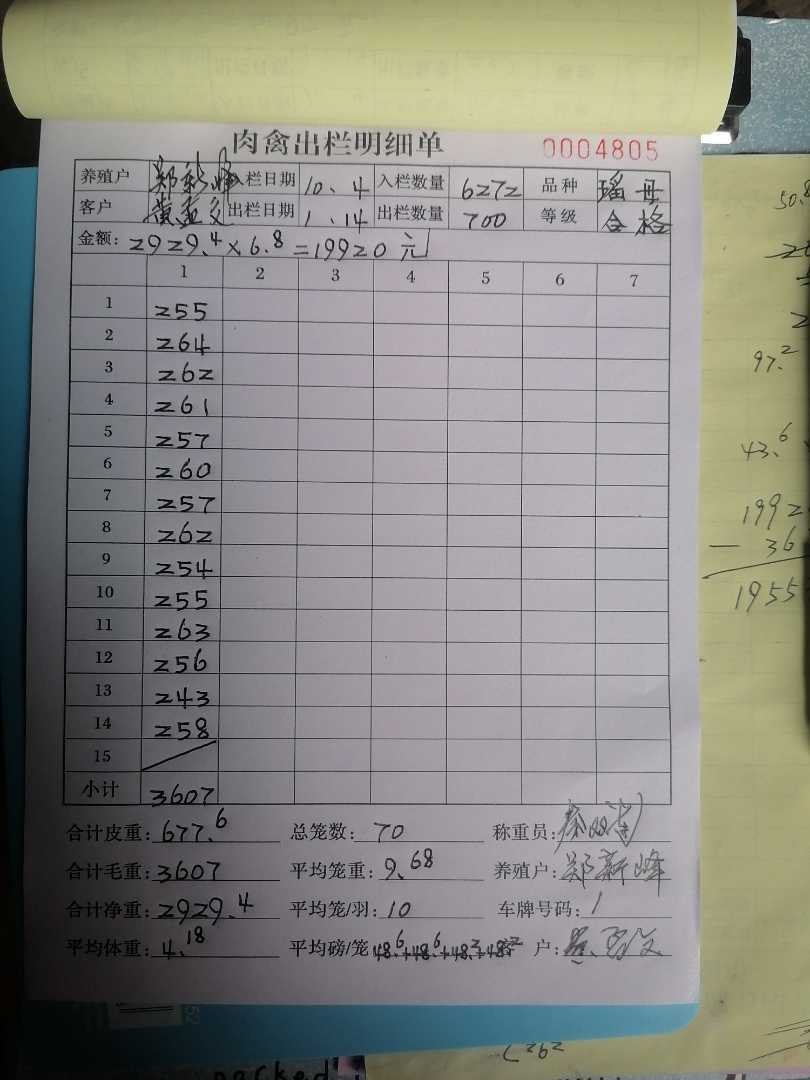 肉禽出栏明细单 0004805
养殖户 郑新峰 入栏日期 10.4 入栏数量 6272 品种 瑶丹
客户 黄孟文 出栏日期 1.14 出栏数量 700 等级 合格
金额: 2929.4×6.8=19920元
1 2 3 4 5 6 7
1 255
2 264
3 262
4 261
5 257
6 260
7 257
8 262
9 254
10 255
11 263
12 256
13 243
14 258
15
小计 3607
合计皮重: 677.6 总笼数: 70 称重员:
合计毛重: 3607 平均笼重: 9.68 养殖户: 郑新峰
合计净重: 2929.4 平均笼/羽: 10 车牌号码: 1
平均体重: 4.18 平均磅/笼 48.6+48.6+48.2+48.2 客户:
50.8
97.2
43.6
1992
- 36
1955
(262
packed